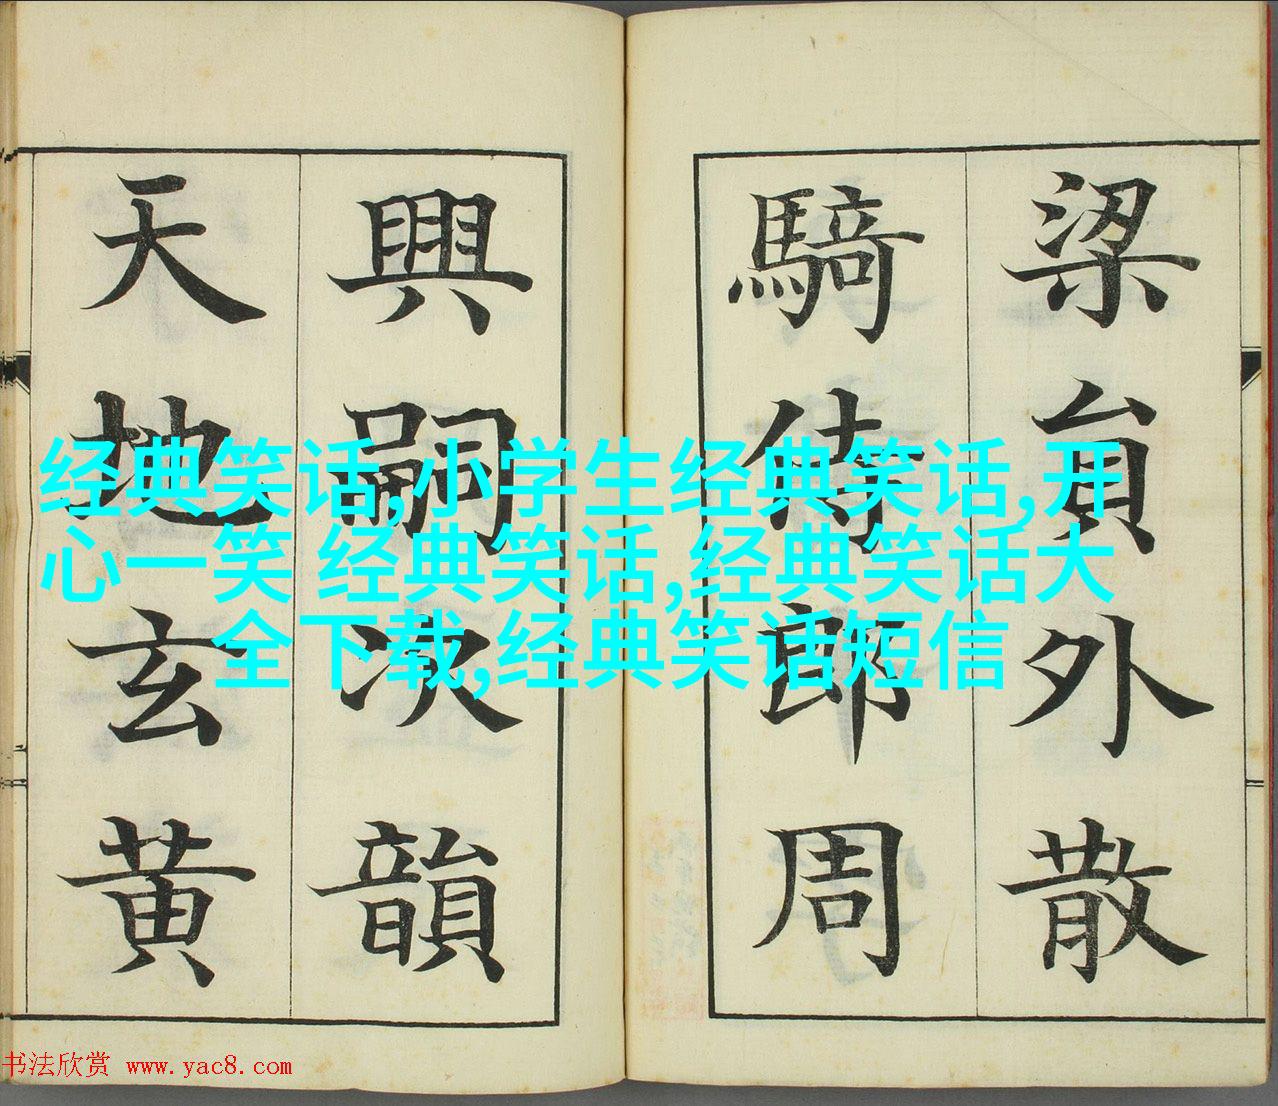 梁員外散
騎侍郎周
興嗣次韻
天地玄黃
经典笑话,小学生经典笑话,开
心一笑 经典笑话,经典笑话大
全下载,经典笑话短信
书法欣赏 www.yac8.com